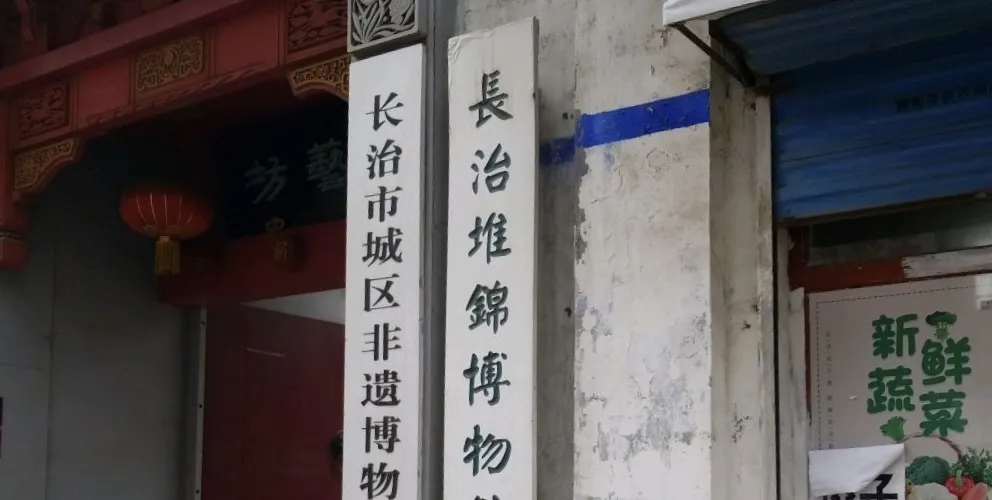 长治市城区非遗博物
長治堆錦博物
藝坊
新鲜
蔬菜